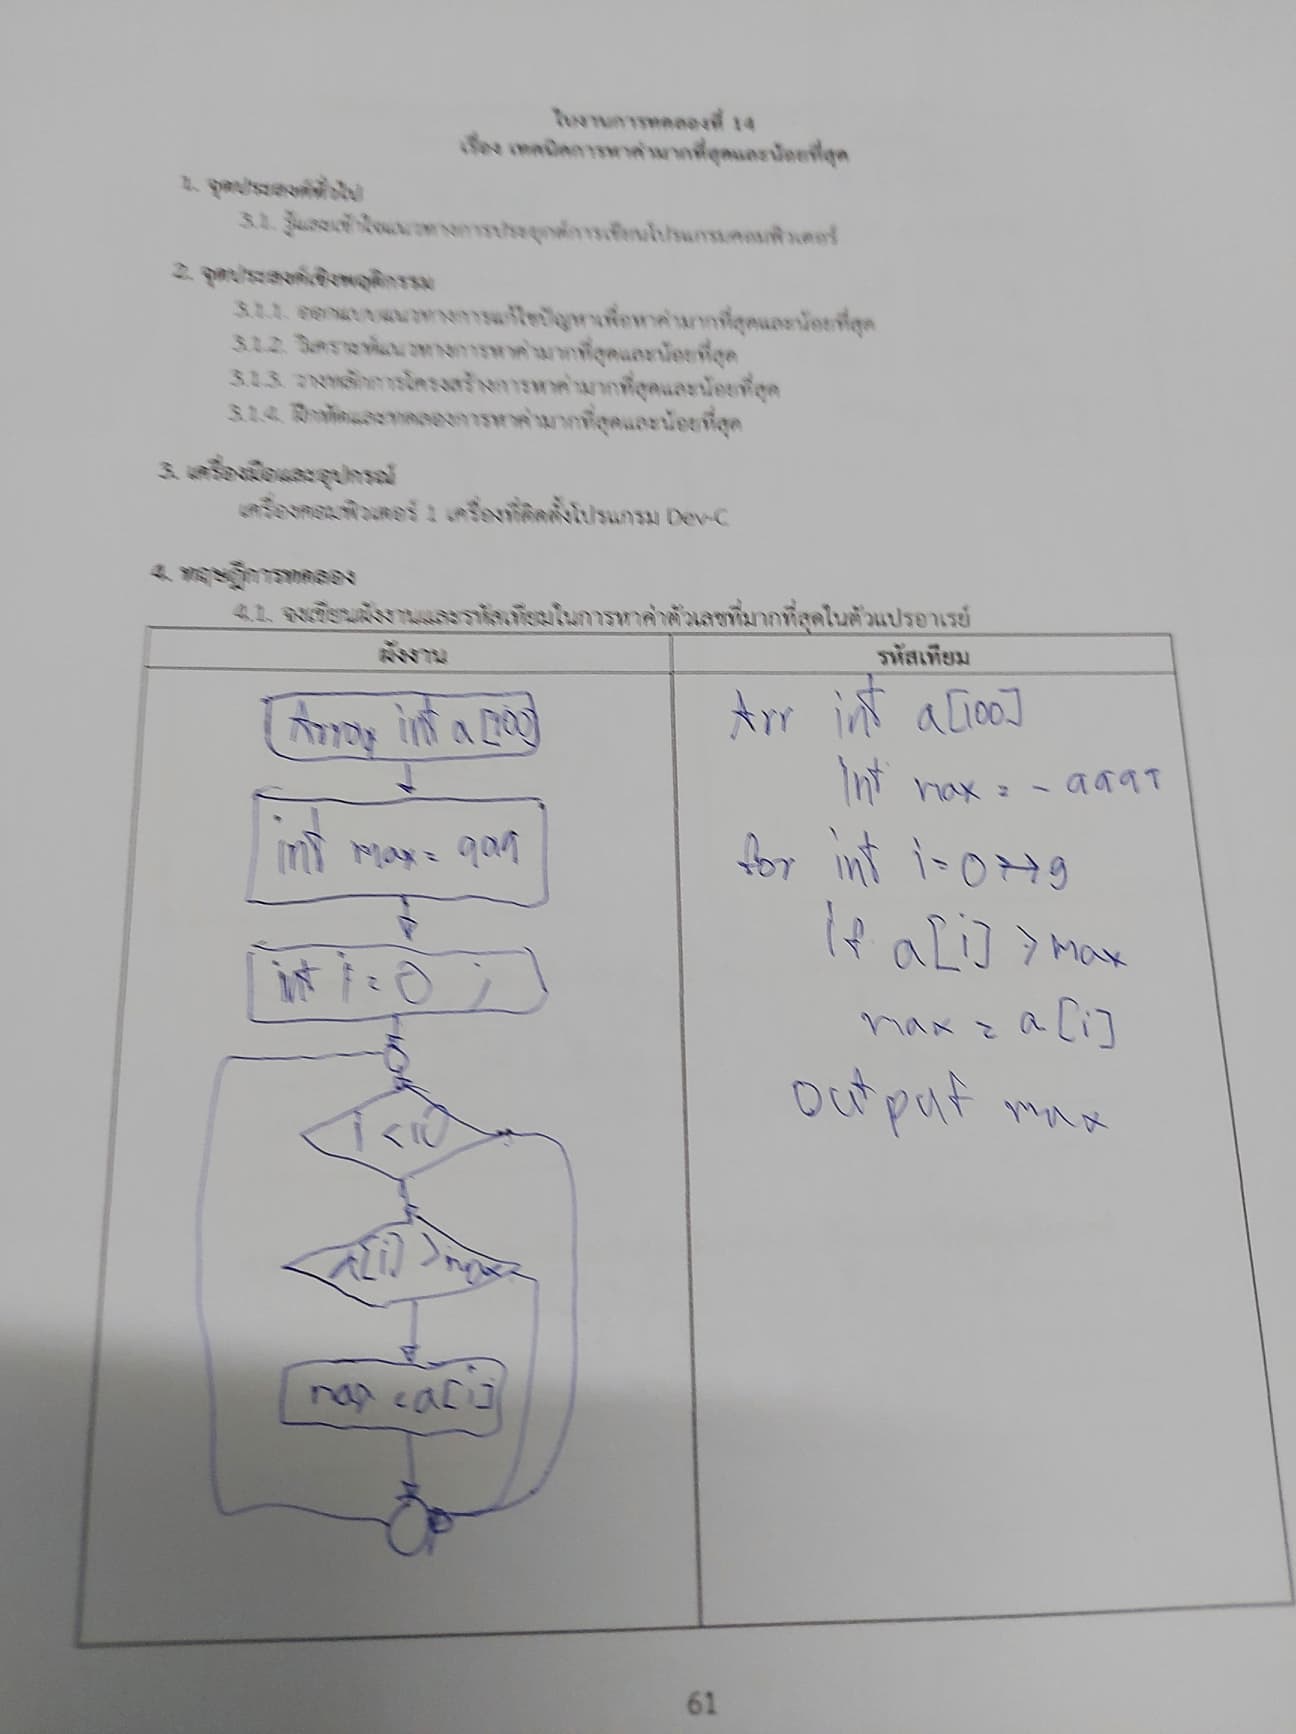 ใบงานการทดลองที่ 14
เรื่อง เทคนิคการหาค่ามากที่สุดและน้อยที่สุด
1. จุดประสงค์ทั่วไป
3.1. รู้และเข้าใจแนวทางการประยุกต์การเขียนโปรแกรมคอมพิวเตอร์
2. จุดประสงค์เชิงพฤติกรรม
3.1.1. ออกแบบแนวทางการแก้ไขปัญหาเพื่อหาค่ามากที่สุดและน้อยที่สุด
3.1.2. วิเคราะห์แนวทางการหาค่ามากที่สุดและน้อยที่สุด
3.1.3. วางหลักการโครงสร้างการหาค่ามากที่สุดและน้อยที่สุด
3.1.4. ฝึกหัดและทดลองการหาค่ามากที่สุดและน้อยที่สุด
3. เครื่องมือและอุปกรณ์
เครื่องคอมพิวเตอร์ 1 เครื่องที่ติดตั้งโปรแกรม Dev-C
4. ทฤษฎีการทดลอง
4.1. จงเขียนผังงานและรหัสเทียมในการหาค่าตัวเลขที่มากที่สุดในตัวแปรอาเรย์
ผังงาน
Array int a[100]
int max = 999
int i = 0 ;
i < 10
a[i] > max
max = a[i]
รหัสเทียม
Arr int a[100]
int max = - 9999
for int i = 0 → 9
if a[i] > max
max = a[i]
output max
61